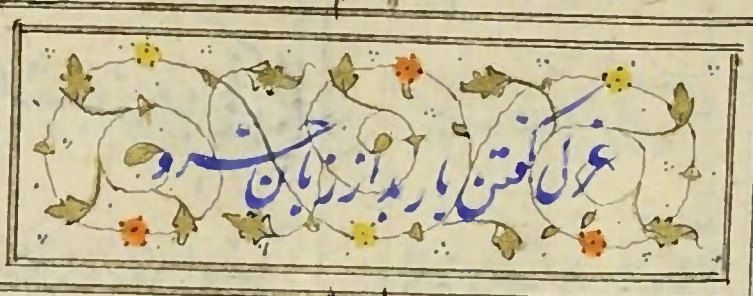 غزل گفتن باربد از زبان خسرو